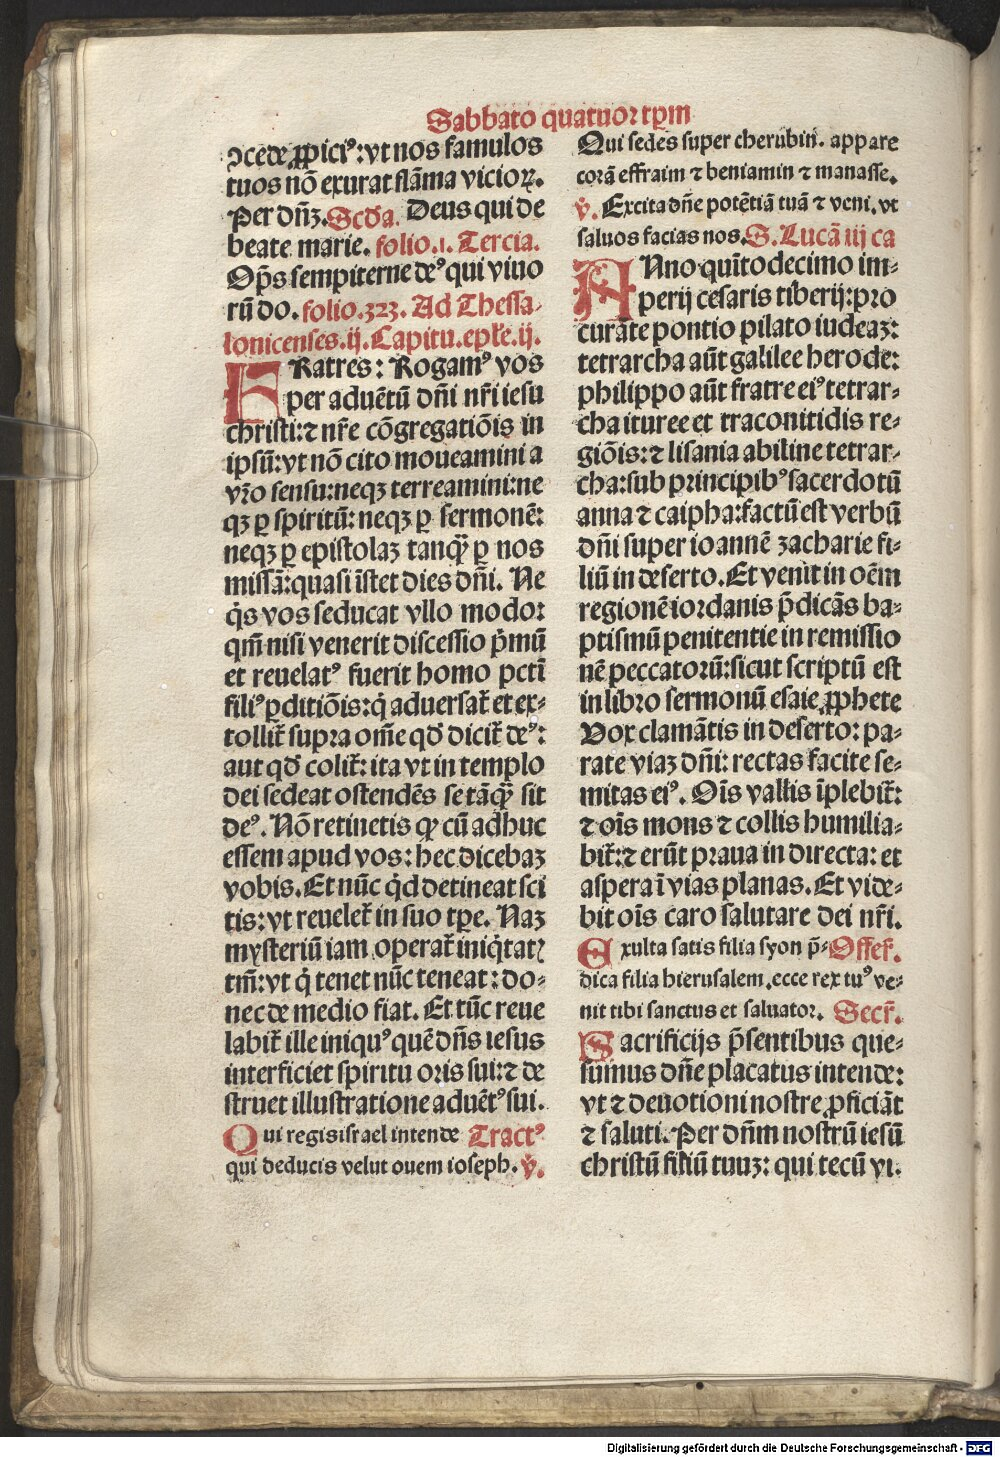 Sabbato quatuor tꝑm
ꝯcede ꝓpiciꝰ: vt nos famulos
tuos nō exurat flāma vicioꝝ.
Per dn̄ꝫ. Scd̄a. Deus qui de
beate marie. folio.1. Tercia.
Op̄s sempiterne deꝰ qui vino
rū do. folio.323. Ad Thessa-
lonicenses.ij. Capitu. epłe.ij.
FRatres: Rogamꝰ vos
per aduētū dn̄i nr̄i iesu
christi: ⁊ nr̄e cōgregatiōis in
ipsū: vt nō cito moueamini a
vr̄o sensu: neqꝫ terreamini: ne
qꝫ ꝑ spiritū: neqꝫ ꝑ sermonē:
neqꝫ ꝑ epistolaꝫ tanqꝫ̄ ꝑ nos
missā: quasi īstet dies dn̄i. Ne
q̇s vos seducat vllo modo:
qm̄ nisi venerit discessio p̄mū
et reuelatꝰ fuerit homo pctī
filiꝰ ꝑditiōis: q̇ aduersat̄ et ex-
tollit̄ supra om̄e qd̄ dicit̄ deꝰ:
aut qd̄ colit̄: ita vt in templo
dei sedeat ostendēs se tāqꝫ̄ sit
deꝰ. Nō retinetis ꝙ cū adhuc
essem apud vos: hec dicebaꝫ
vobis. Et nūc q̇d detineat sci
tis: vt reuelet̄ in suo tꝑe. Naꝫ
mysteriū iam operat̄ iniq̇tatꝭ
tm̄: vt q̇ tenet nūc teneat: do-
nec de medio fiat. Et tūc reue
labit̄ ille iniquꝰ quē dn̄s iesus
interficiet spiritu oris sui: ⁊ de
struet illustratione aduētꝰ sui.
Qui regis israel intende Tractꝰ
qui deducis velut ouem ioseph. v̇.
Qui sedes super cherubin. appare
corā effraim ⁊ beniamin ⁊ manasse.
v̇. Excita dn̄e potētiā tuā ⁊ veni. vt
saluos facias nos. S. Lucā iij ca
ANno quīto decimo im-
perij cesaris tiberij: pro
curāte pontio pilato iudeaꝫ:
tetrarcha aūt galilee herode:
philippo aūt fratre eiꝰ tetrar-
cha ituree et traconitidis re-
giōis: ⁊ lisania abiline tetrar-
cha: sub principibꝰ sacerdotū
anna ⁊ caipha: factū est verbū
dn̄i super ioannē zacharie fi-
liū in deserto. Et venit in oēm
regionē iordanis p̄dicās ba-
ptismū penitentie in remissio
nē peccatorū: sicut scriptū est
in libro sermonū esaie ꝓphete
Vox clamātis in deserto: pa-
rate viaꝫ dn̄i: rectas facite se-
mitas eiꝰ. Oīs vallis īplebit̄:
⁊ oīs mons ⁊ collis humilia-
bit̄: ⁊ erūt praua in directa: et
aspera ī vias planas. Et vide-
bit oīs caro salutare dei nr̄i.
Exulta satis filia syon p̄- Offer̄.
dica filia hierusalem. ecce rex tuꝰ ve-
nit tibi sanctus et saluator. Secr̄.
Sacrificijs p̄sentibus que-
sumus dn̄e placatus intende:
vt ⁊ deuotioni nostre ꝓficiāt
⁊ saluti. Per dn̄m nostrū iesū
christū filiū tuuꝫ: qui tecū vi.
Digitalisierung gefördert durch die Deutsche Forschungsgemeinschaft - DFG